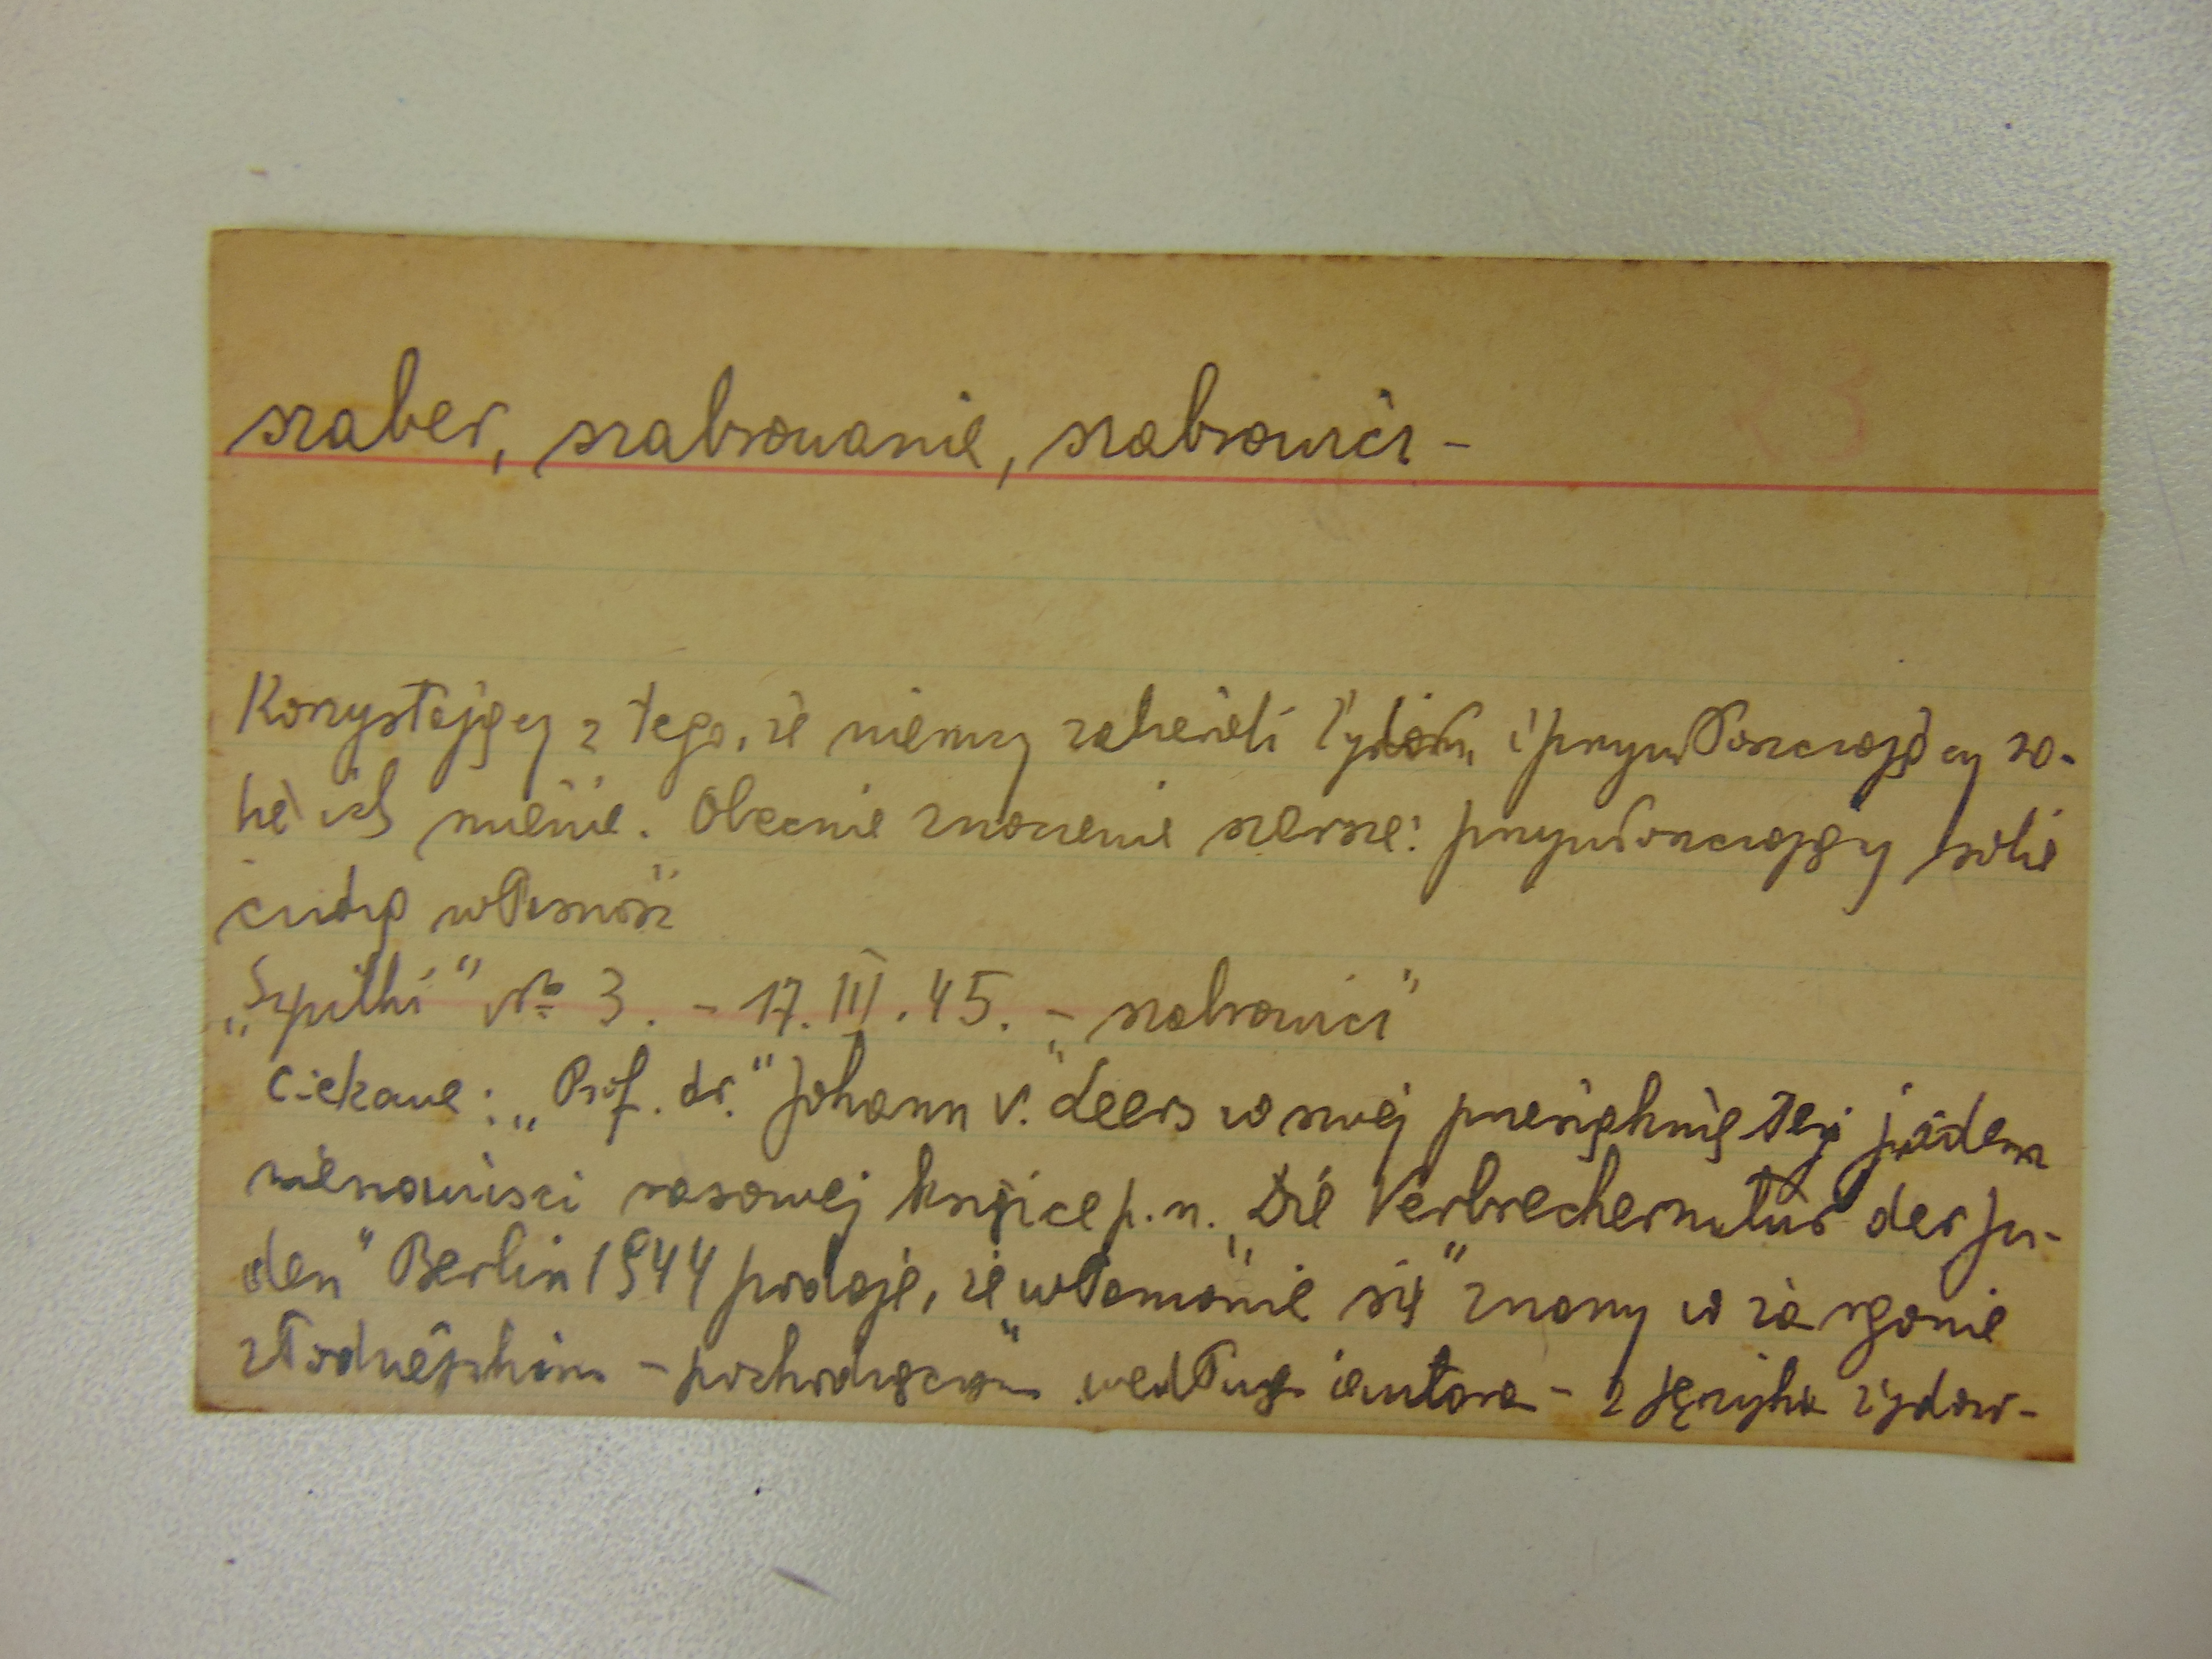 szaber, szabrowanie, szabrownicy -
Korzystający z tego, że niemcy zabierali Żydów, i przywłaszczający so-
bie ich mienie. Obecnie znaczenie szersze: przywłaszczający sobie
cudzą własność
„Szpilki" № 3. - 17.III.45. - „szabrownicy"
Ciekawe: „Prof. dr." Johann v. Leers w swej przesiąkniętej jadem
nienawiści rasowej książce p.n. „Die Verbrechernatur der Ju-
den" Berlin 1944 podaje, że „włamanie się" znany w żargonie
złodziejskim - pochodzącym według autora - z języka żydow-